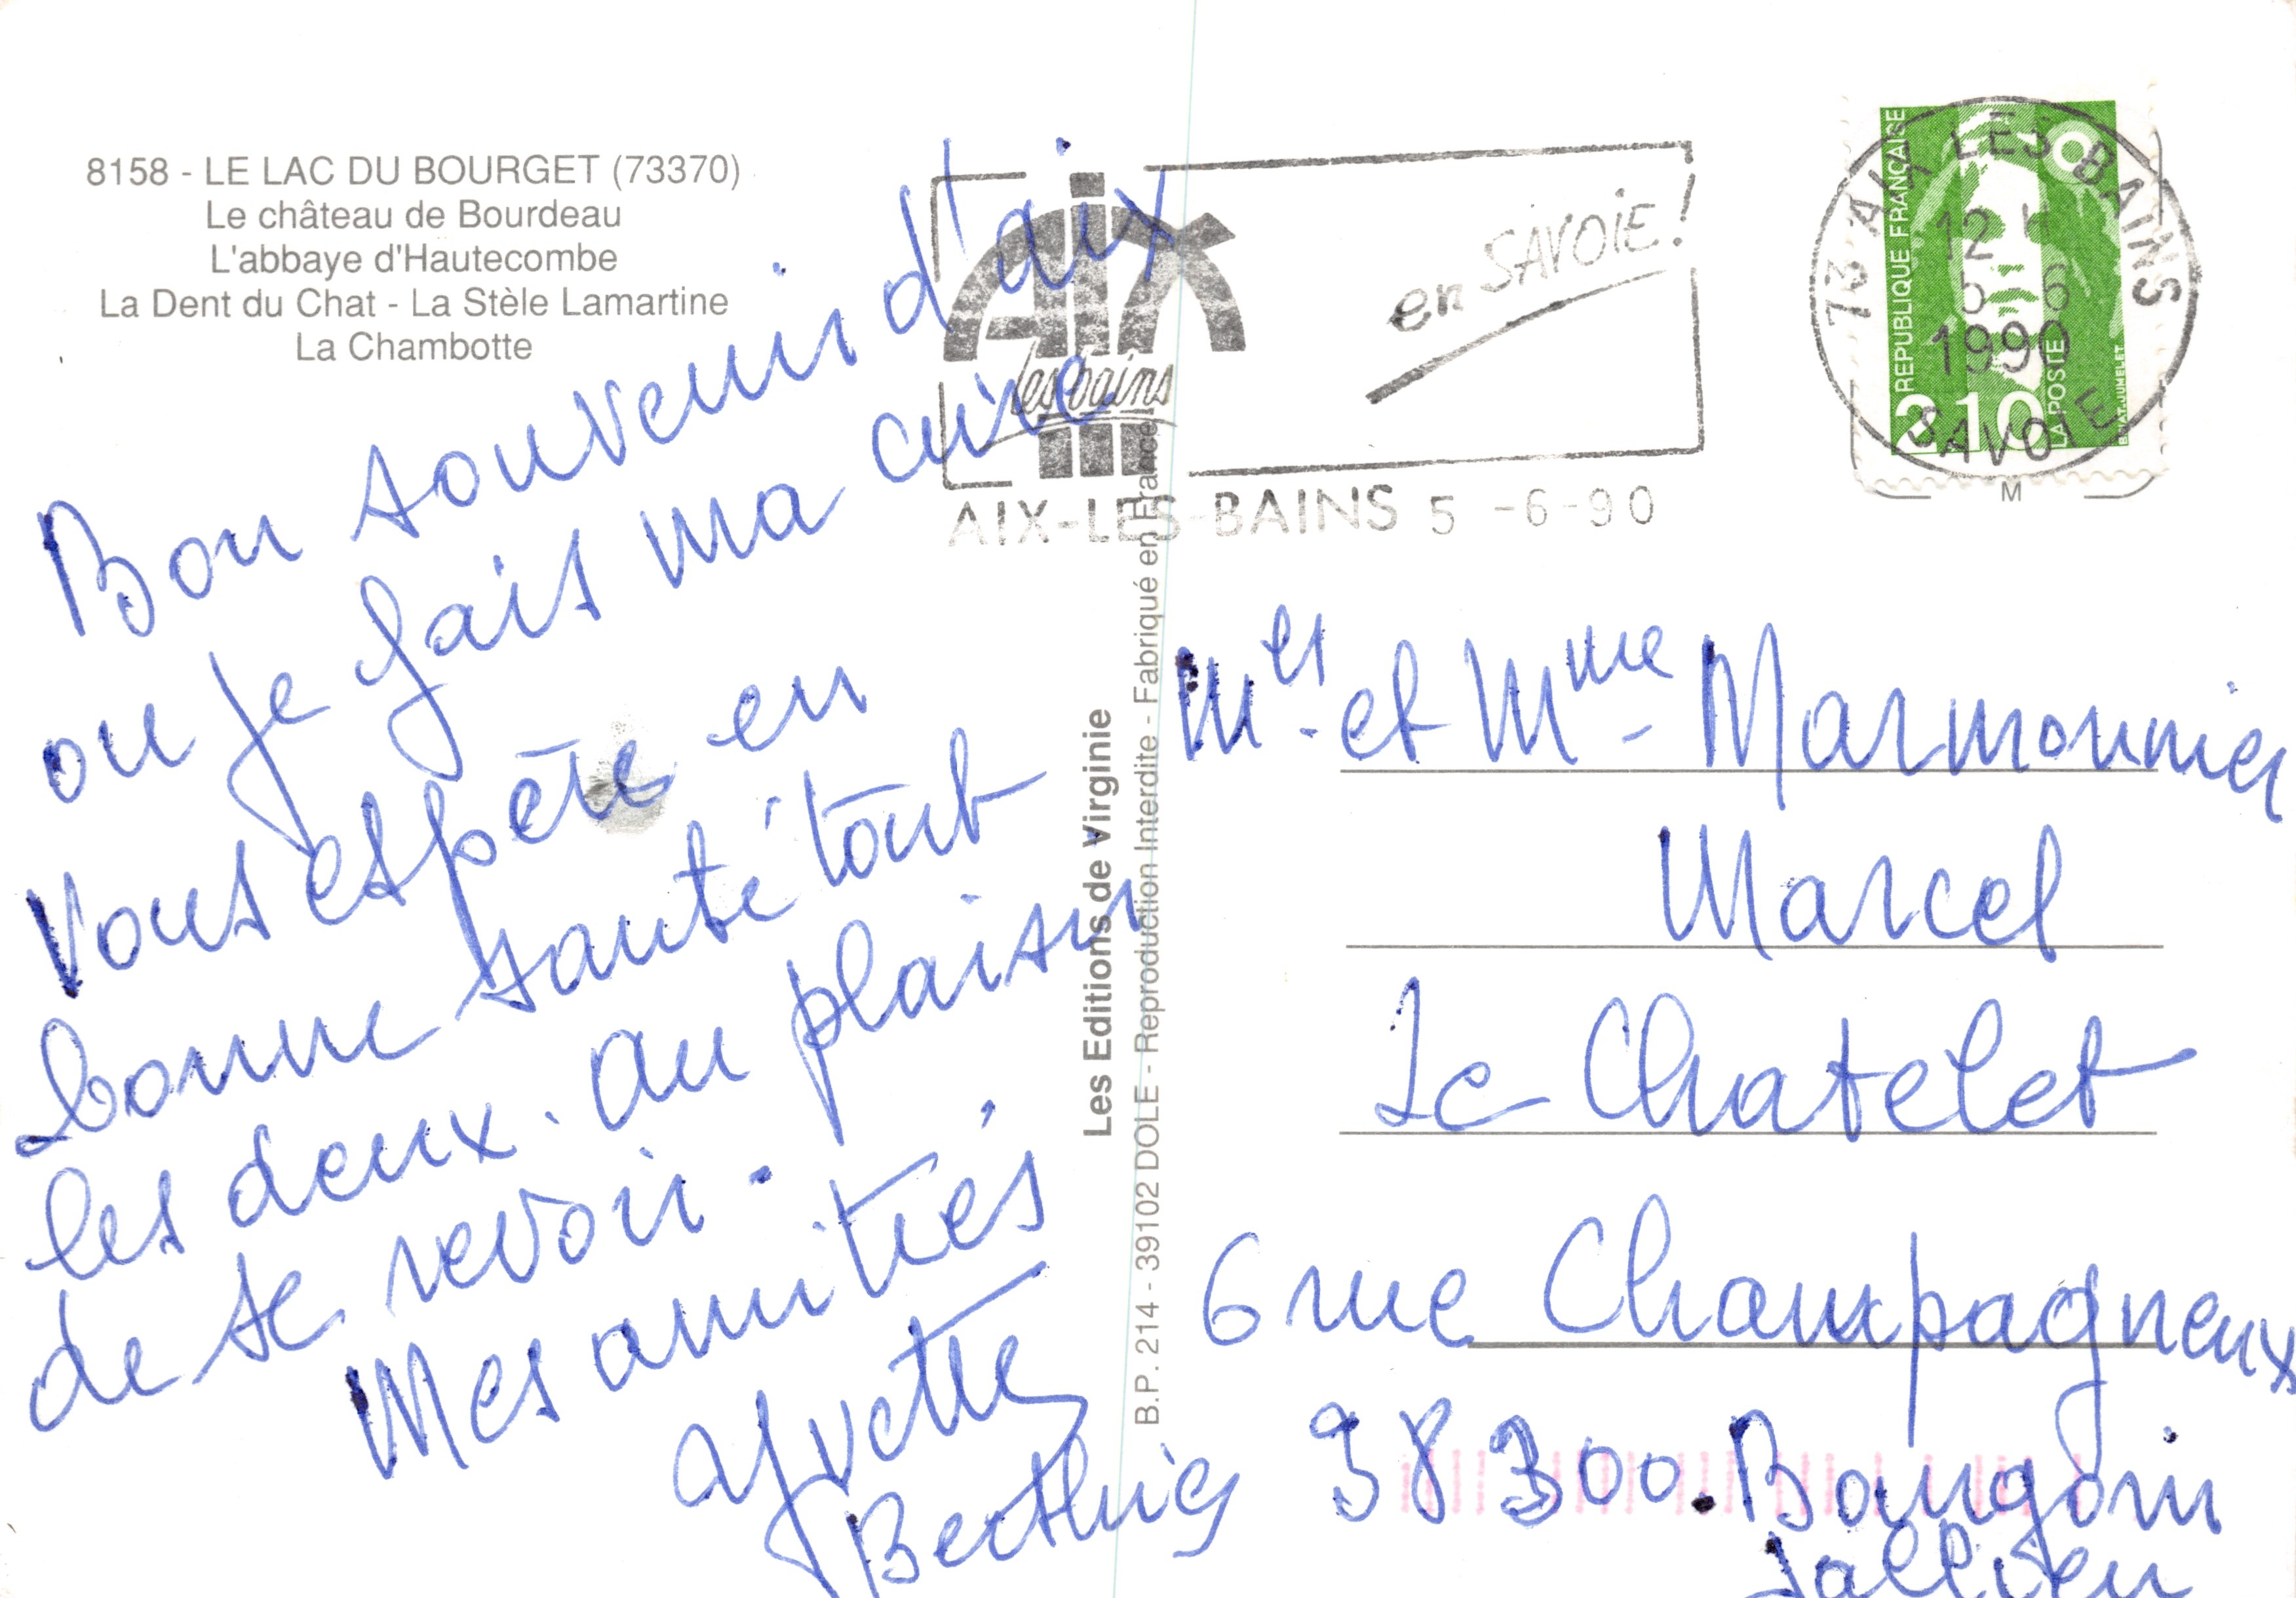 8158 - LE LAC DU BOURGET (73370)
Le château de Bourdeau
L'abbaye d'Hautecombe
La Dent du Chat - La Stèle Lamartine
La Chambotte
Bon souvenir d'aix
ou je fais ma cure
Vous espère en
bonne santé tout
les deux. au plaisir
de se revoir.
Mes amitiés
Yvette
Les Editions de Virginie
B.P. 214 - 39102 DOLE - Reproduction Interdite - Fabriqué en France
Aix
les bains
en SAVOIE!
AIX-LES-BAINS 5 -6-90
REPUBLIQUE FRANÇAISE
2,10
LA POSTE
BRIAT-JUMELET
73 AIX LES BAINS
12 H
5 6
1990
SAVOIE
M
Mer. et Mme - Marmonnier
Marcel
Le Chatelet
6 rue Champagneux
38300. Bourgoin
Jallieu